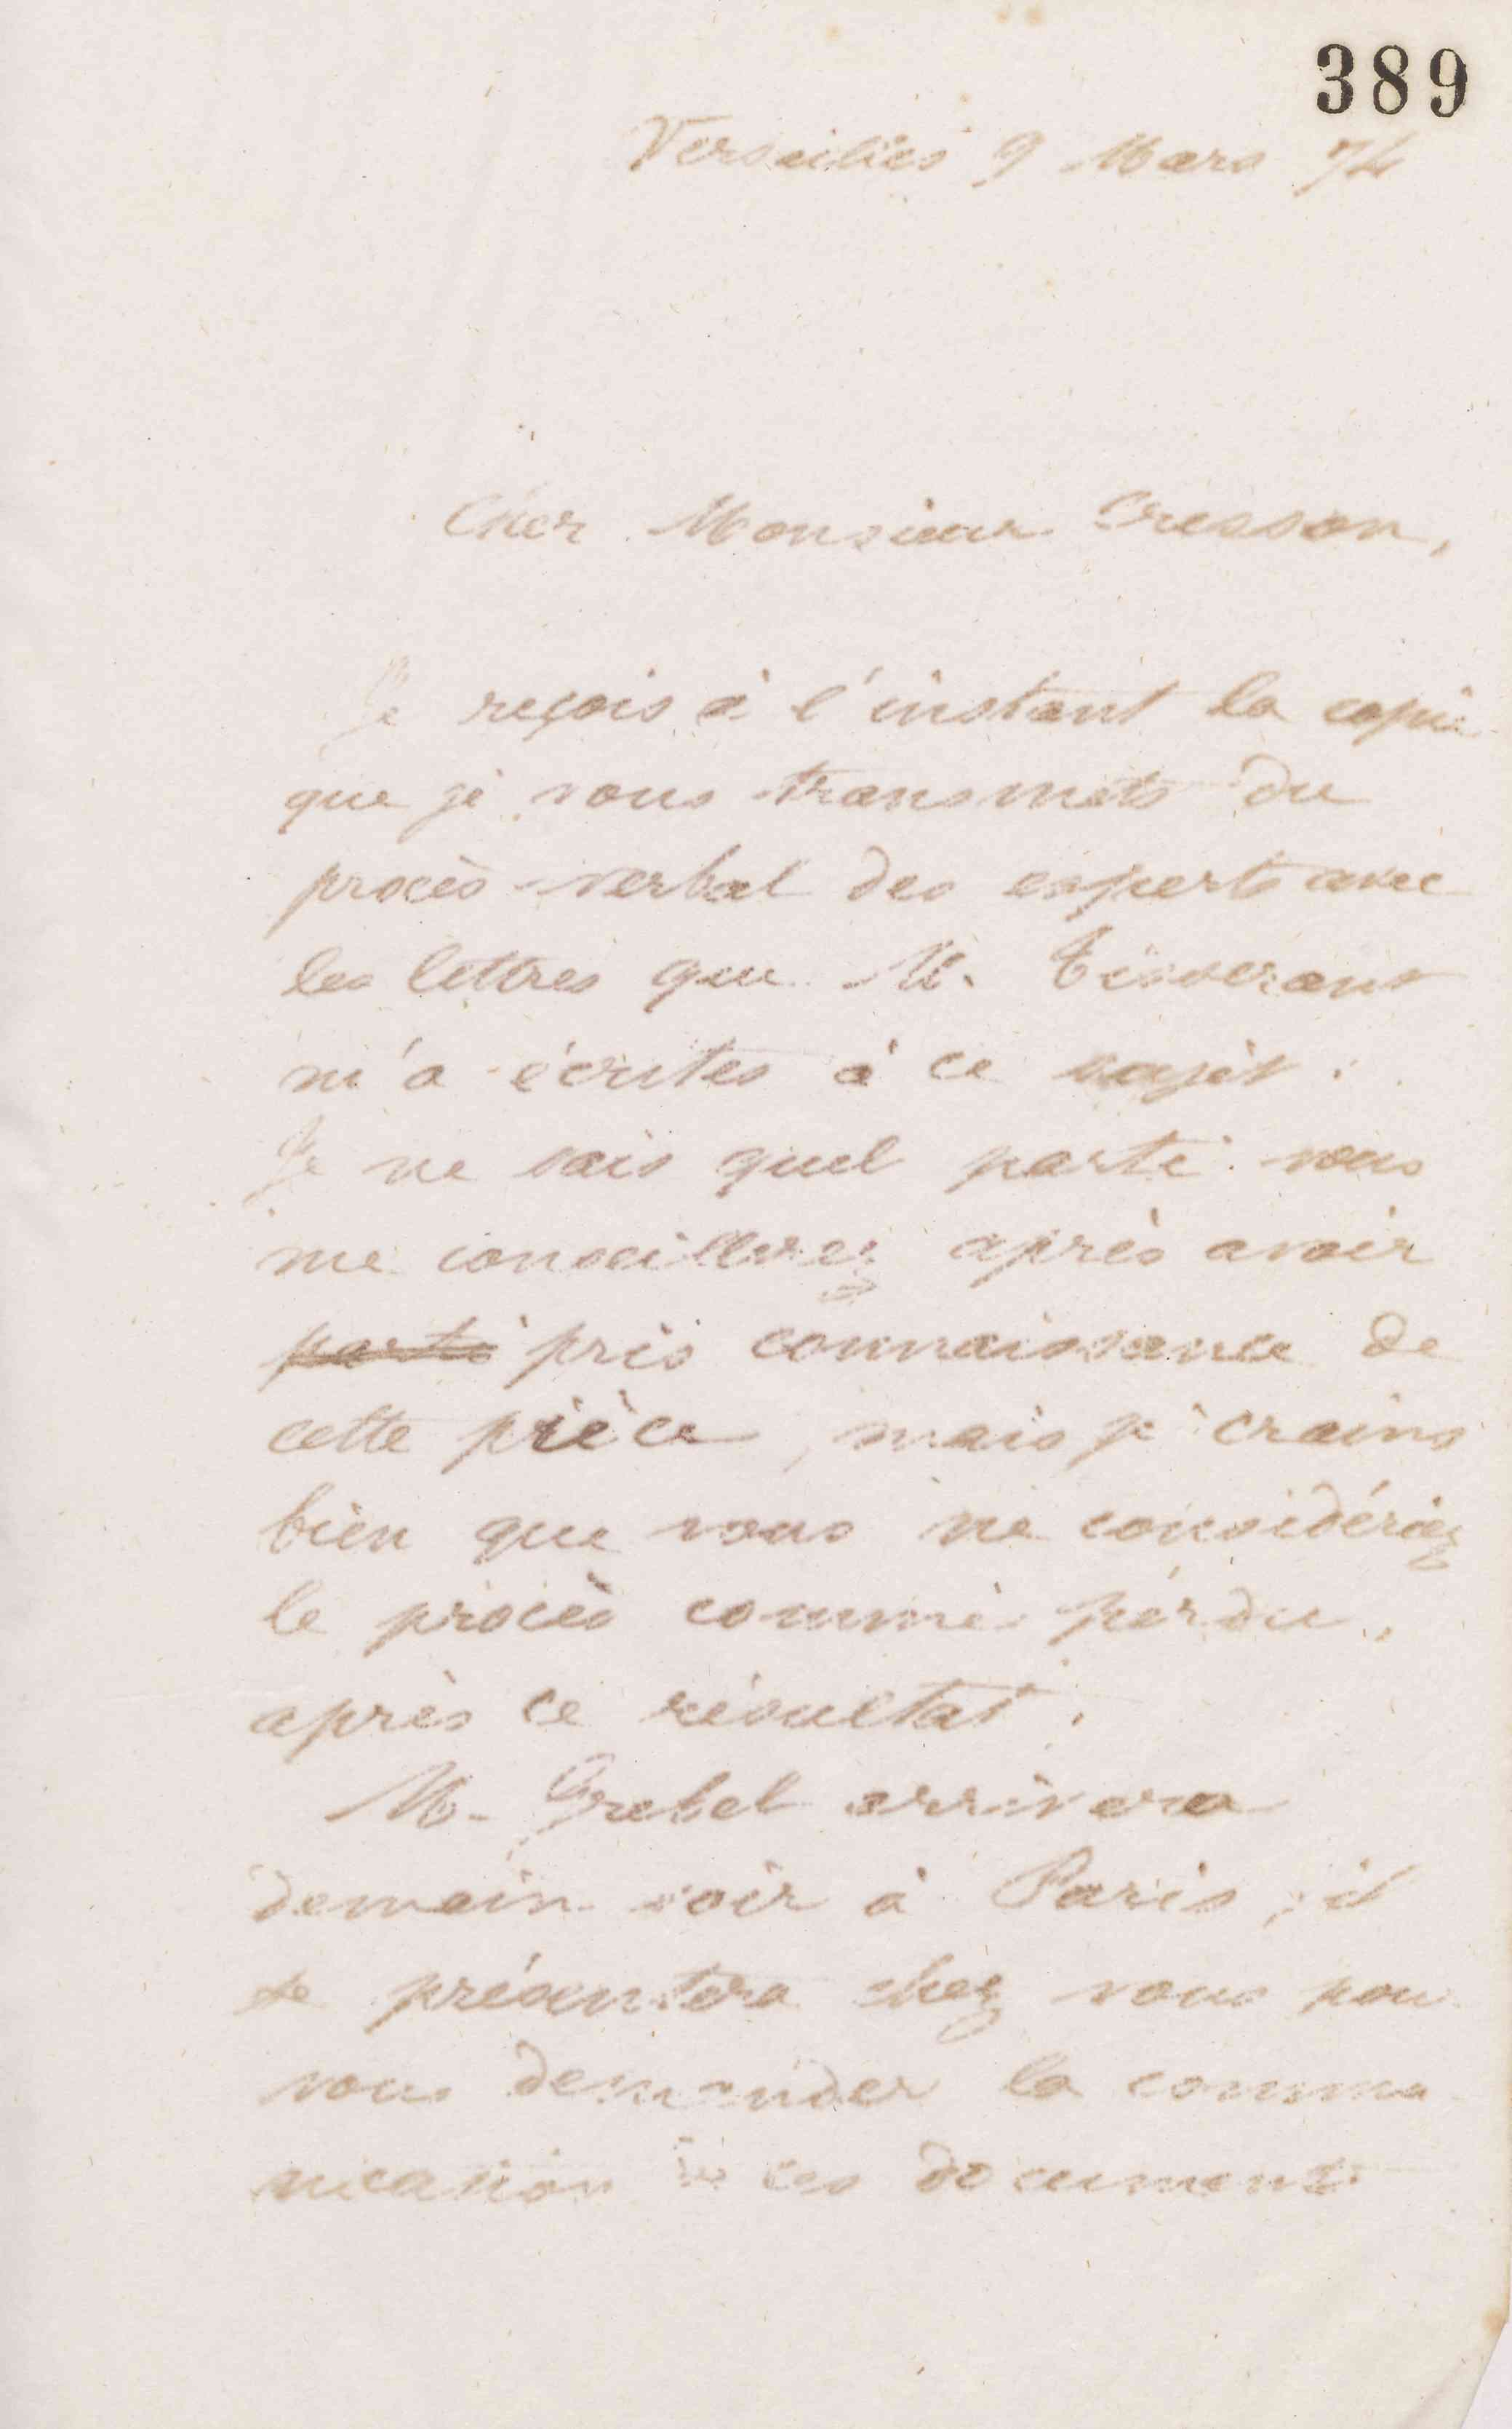 389
Versailles 9 Mars 74
Cher Monsieur Cresson,
Je reçois à l'instant la copie
que je vous transmets du
procès-verbal des experts avec
les lettres que M. Tisserant
m'a écrites à ce sujet.
Je ne sais quel parti vous
me conseillerez après avoir
parti pris connaissance de
cette pièce, mais je crains
bien que vous ne considériez
le procès comme perdu,
après ce résultat.
M. Grebel arrivera
demain soir à Paris, il
se présentera chez vous pour
vous demander la commu
nication de ces documents